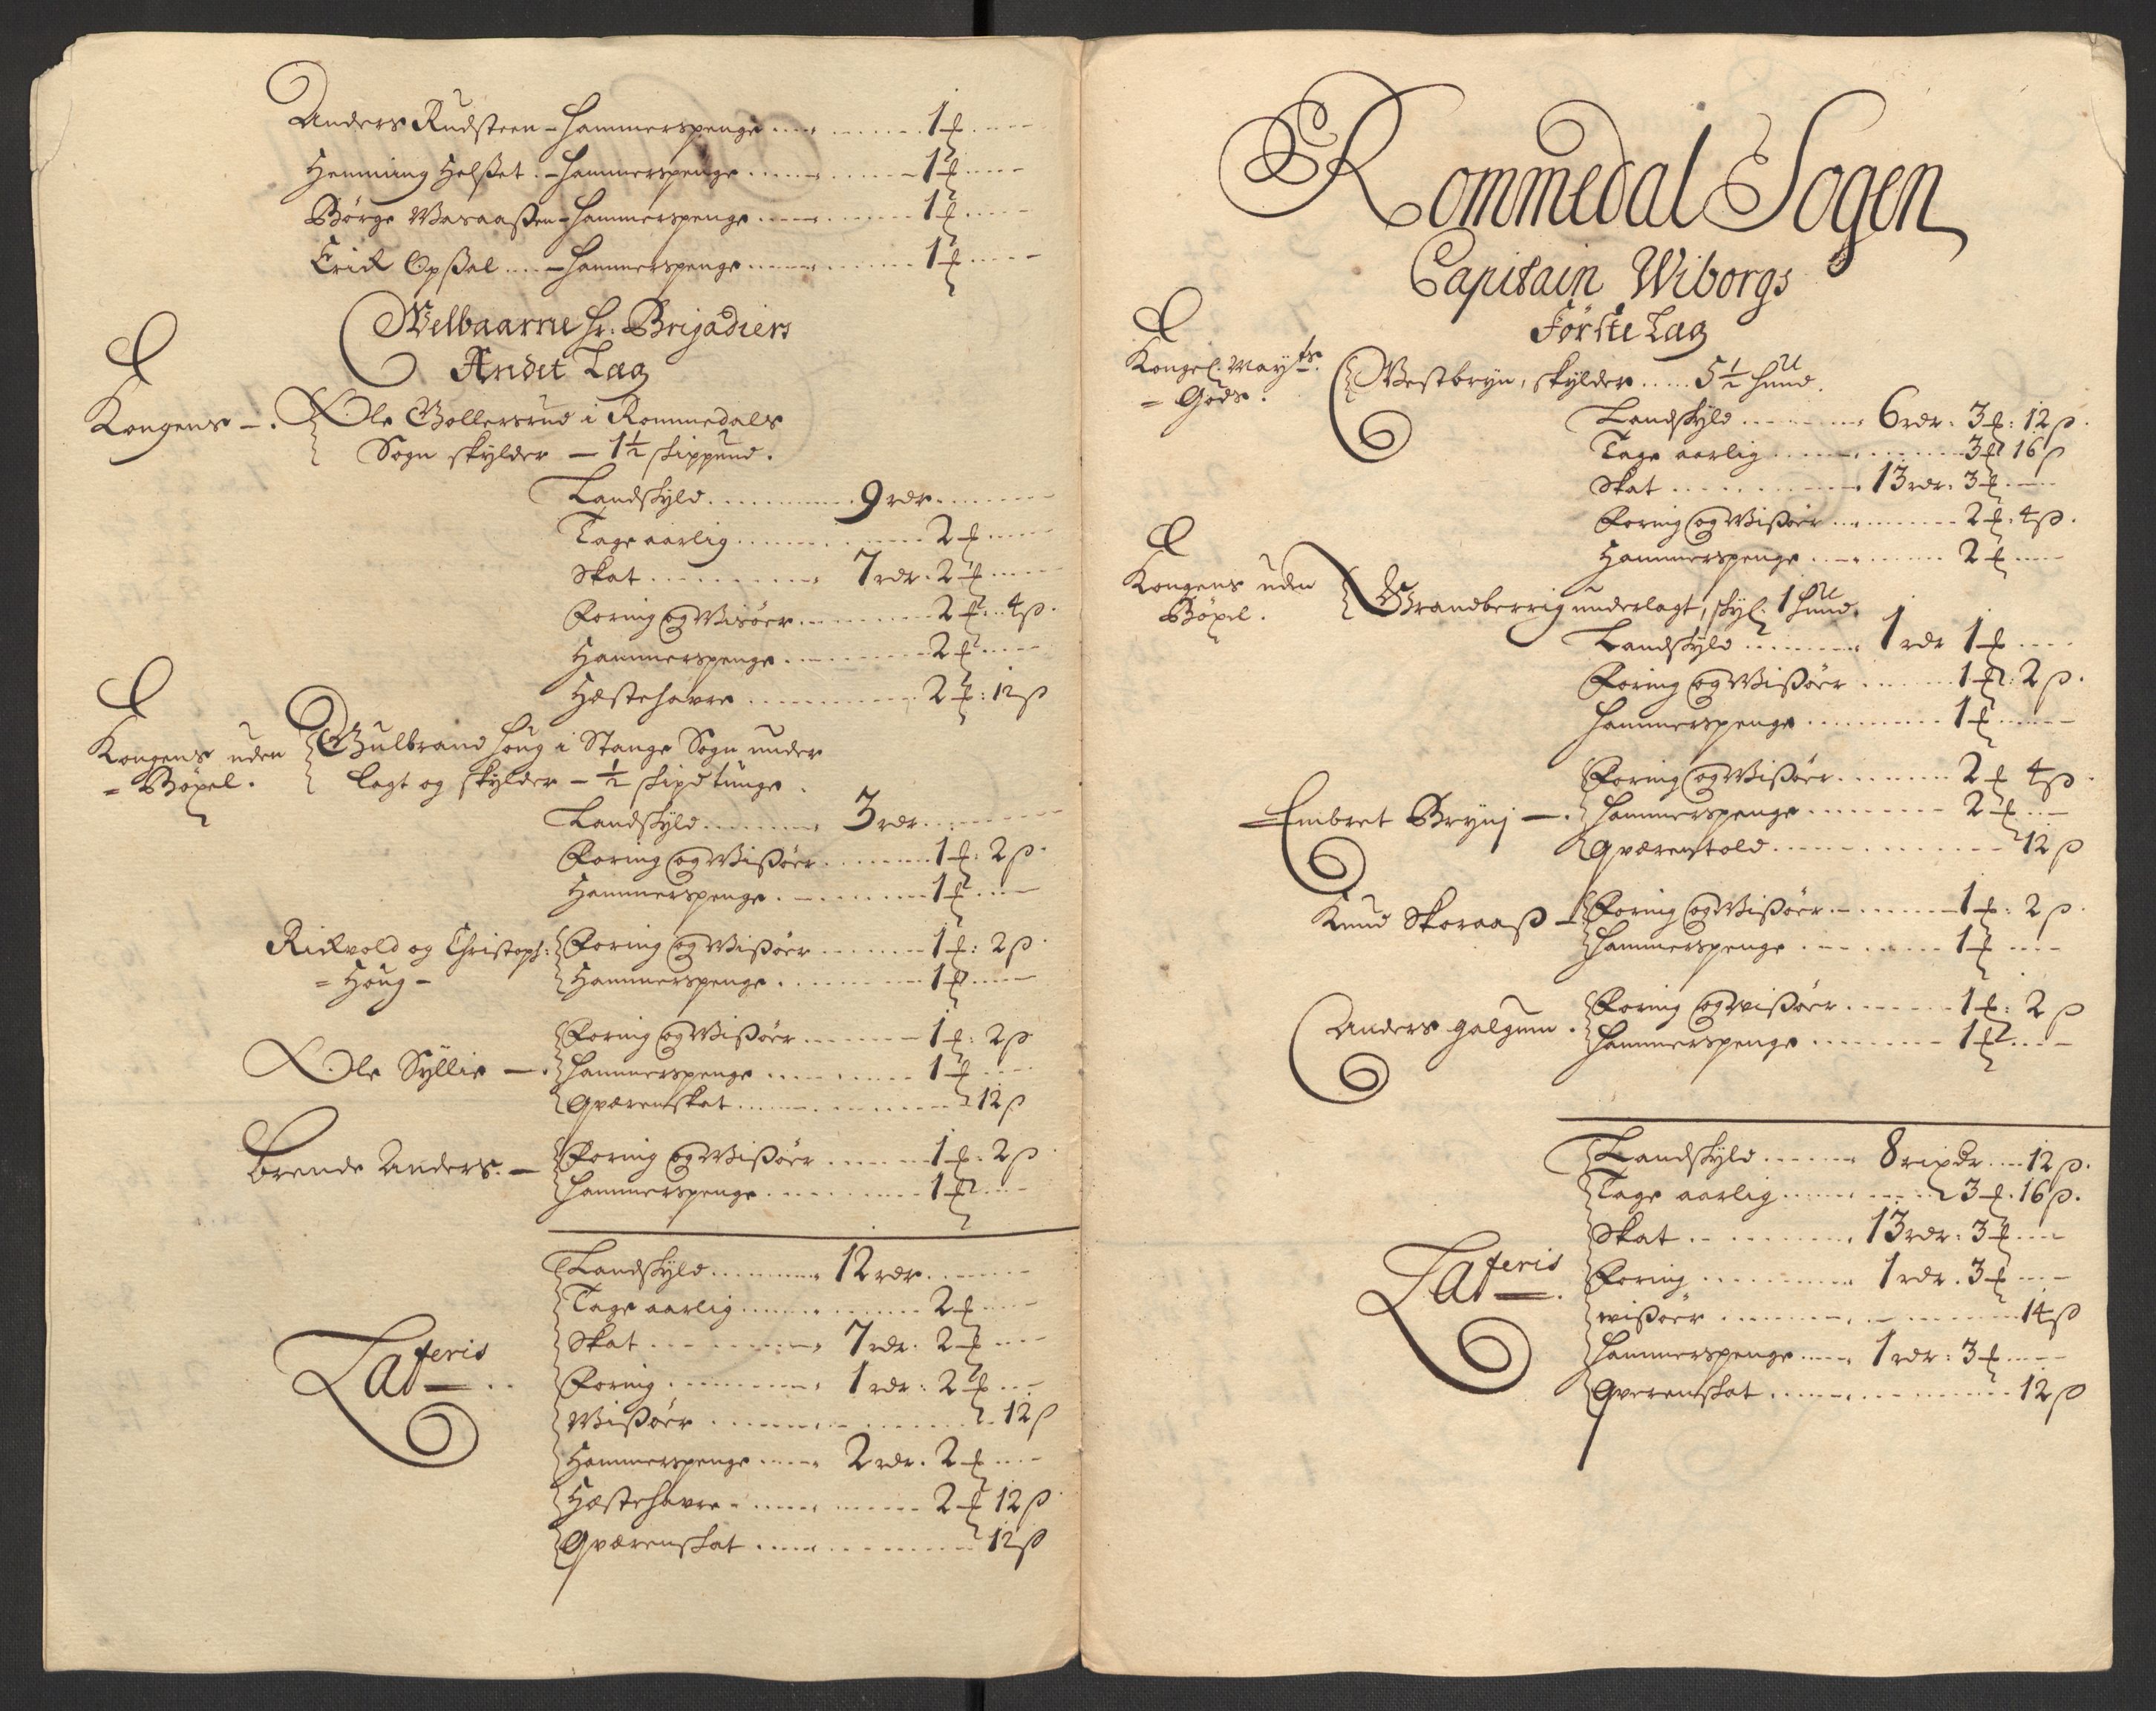 Anders Rudsteen - Hammerspenge ..... 1 ℔ ....
Henning Helsset . - Hammerspenge ..... 1 ℔ ....
Börge Wasaassen - Hammerspenge ..... 1 ℔ ....
Erick Opssal .... - Hammerspenge ..... 1 ℔ ....
Welbaarne Hr: Brigadiers
Andet Læg
Kongens - . Ole Gollersrud i Rommedals
Sogn skylder - 1½ skippund.
Landskyld ..... 9 rdr. ....
Tage aarlig ..... 2 ℔ ....
Skat ..... 7 rdr. 2 ℔ ....
Foring og Wisöer ..... 2 ℔: 4 ß.
Hammerspenge ..... 2 ℔ ....
Hæstehavre ..... 2 ℔: 12 ß
Kongens uden
= Böxel.
Gulbrand Houg i Stange Sogn under
lagt og skylder - ½ skipd tunge.
Landskyld ..... 3 rdr. ....
Foring og Wissöer ..... 1 ℔: 2 ß.
Hammerspenge ..... 1 ℔ ....
Rickvold og Christoph: Foring og Wissöer ..... 1 ℔: 2 ß.
= Houg - Hammerspenge ..... 1 ℔ ....
Foring og Wissöer ..... 1 ℔: 2 ß
Ole Syllie - . Hammerspenge ..... 1 ℔ ....
Qværenskat ..... 12 ß
Brende Anders. - Foring og Wissöer ..... 1 ℔: 2 ß.
Hammerspenge ..... 1 ℔ ....
Landskyld ..... 12 rdr. ....
Tage aarlig ..... 2 ℔ ....
Skat ..... 7 rdr. 2 ℔ ....
Lateris .. Foring ..... 1 rdr: 2 ℔ ....
Wissöer ..... 12 ß
Hammerspenge ..... 2 rdr. 2 ℔ ....
Hæstehavre ..... 2 ℔ 12 ß.
Qværenskat ..... 12 ß
Rommedal Sogen
Capitain Wiborgs
Förste Læg
Kongel. Mayts.
= Gods.
Westbryn, skylder ..... 5½ hud.
Landskyld ..... 6 rdr. 3 ℔: 12 ß.
Tage aarlig ..... 3 ℔ 16 ß
Skat ..... 13 rdr. 3 ℔ ....
Foring og Wissöer ..... 2 ℔: 4 ß.
Hammerspenge ..... 2 ℔ ....
Kongens uden
Böxel.
Grandberrig underlagt, skyl: 1 hud.
Landskyld ..... 1 rdr 1 ℔ ....
Foring og Wissöer ..... 1 ℔: 2 ß.
Hammerspenge ..... 1 ℔ ....
Foring og Wissöer ..... 2 ℔ 4 ß.
Embret Brynj - . Hammerspenge ..... 2 ℔ ....
Qværentold ..... 12 ß
Knud Skoraass - Foring og Wissöer ..... 1 ℔: 2 ß.
Hammerspenge ..... 1 ℔ ....
Anders galgum . Foring og wissöer ..... 1 ℔: 2 ß
Hammerspenge ..... 1 ℔ ....
Landskyld ..... 8 rixdr .... 12 ß.
Tage aarlig ..... 3 ℔. 16 ß.
Skat ..... 13 rdr: 3 ℔ ....
Lateris . Foring ..... 1 rdr. 3 ℔ ....
wissöer ..... 14 ß
Hammerspenge ..... 1 rdr: 3 ℔ ....
Qverenskat ..... 12 ß